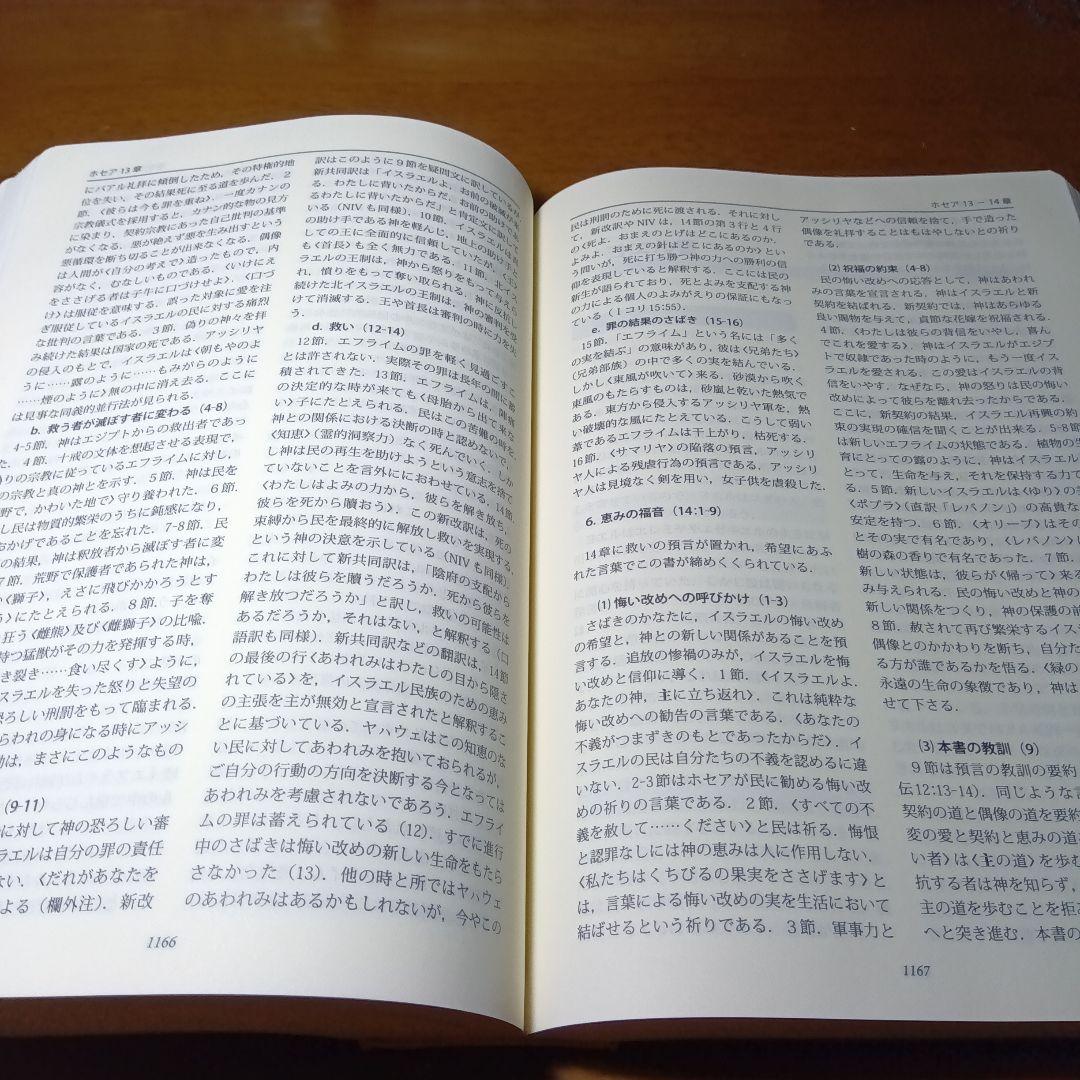 ホセア 13 章
にバアル礼拝に傾倒したため，その特権的地
位を失い，その結果死に至る道を歩んだ．2
節．〈彼らは今も罪を重ね〉．一度カナンの
宗教儀式を採用すると，カナン的な物の見方
に染まり，契約宗教にあった自己批判の基準
がなくなる．悪が絶えず悪を生み出すという
悪循環を断ち切ることが出来なくなる．偶像
は人間が〈自分の考えで〉造ったもので，内
容がなく，むなしいものである．〈いけにえ
をささげる者は子牛に口づけせよ〉．〈口づ
け〉は服従を意味する．誤った対象に愛を注
ぎ服従しているイスラエルの民に対する痛烈
な批判の言葉である．3節．偽りの神々を拝
み続けた結果は国家の死である．アッシリヤ
の侵入のもとで，イスラエルは〈朝もやのよう
に……露のように……もみがらのように
……煙のように〉無の中に消え去る．ここに
は見事な同義的並行法が見られる．
b. 救う者が滅ぼす者に変わる（4-8）
4-5節．神はエジプトからの救出者であっ
た．4節．十戒の文体を想起させる表現で，
りの宗教に従っているエフライムに対し，
の宗教と真の神とを示す．5節．神は民を
野で，かわいた地で〉守り養われた．6節．
し民は物質的繁栄のうちに鈍感になり，
おかげであることを忘れた．7-8節．民
の結果，神は釈放者から滅ぼす者に変
7節．荒野で保護者であられた神は，
〈獅子〉，えさに飛びかかろうとす
う〉にたとえられる．8節．子を奪
狂う〈雌熊〉及び〈雌獅子〉の比喩．
持つ猛獣がその力を発揮する時，
き裂き……食い尽くす〉ように，
スラエルを失った怒りと失望の
恐ろしい刑罰をもって臨まれる．
らわれの身になる時にアッシ
動は，まさにこのようなもの
（9-11）
に対して神の恐ろしい審
ラエルは自分の罪の責任
ない．〈だれがあなたを
よる（欄外注）．新改
訳はこのように9節を疑問文に訳しているが，
新共同訳は「イスラエルよ，お前の破滅が来
る．わたしに背いたからだ．お前の助けであ
るわたしに背いたからだ」と肯定文に訳して
いる（NIVも同様）．10節．イスラエルは真
の助け手である神を軽んじ，地上の助け手とし
ての王に全面的に信頼していたが，今やその王
も〈首長〉も全く無力である．11節．北イス
ラエルの王制は，神から怒りをもって与えら
れ，憤りをもって奪い取られる．神に反抗し
続けた北イスラエルの王制は，神の審判を受
けて消滅する．王や首長は審判の時に力を失
う．
d. 救い（12-14）
12節．エフライムの罪を軽く見過ごすこ
とは許されない．実際その罪は長年の間に蓄
積されてきた．13節．エフライムは，陣痛
の決定的な時が来ても〈母胎から出て来な
い〉子にたとえられる．民はこの苦難の時を，
神との関係における決断の時と認めないで，
〈知恵〉（霊的洞察力）なく死んでいく．しか
し神は民の再生を助けようという意志を捨て
ていないことを言外ににおわせている．14節．
〈わたしはよみの力から，彼らを解き放ち，
彼らを死から贖おう〉．この新改訳は，死の
束縛から民を最終的に解放し救いを実現する
という神の決意を示している（NIVも同様）．
これに対して新共同訳は，「陰府の支配から
わたしは彼らを贖うだろうか．死から彼らを
解き放つだろうか」と訳し，救いの可能性は
あるだろうか，それはない，と解釈する（口
語訳も同様）．新共同訳などの翻訳は，14節
の最後の行〈あわれみはわたしの目から隠さ
れている〉を，イスラエル民族のための恵み
の主張を主が無効と宣言されたと解釈するこ
とに基づいている．ヤハウェはこの知恵のな
い民に対してあわれみを抱いておられるが，
ご自分の行動の方向を決断する今となっては
あわれみを考慮されないであろう．エフライ
ムの罪は蓄えられている（12）．すでに進行
中のさばきは悔い改めの新しい生命をもたら
さなかった（13）．他の時と所ではヤハウェ
のあわれみはあるかもしれないが，今やこの
1166
ホセア 13 － 14 章
民は刑罰のために死に渡される．それに対し
て，新改訳や NIV は，14節の第3行と4行
の〈死よ．おまえのとげはどこにあるのか．
よみよ．おまえの針はどこにあるのか〉とい
う問いが，死に打ち勝つ神の力への勝利の信
仰を表現していると解釈する．ここには民の
新生が語られており，死とよみを支配する神
の力による個人のよみがえりの保証にもなっ
ている（Ⅰコリ15:55）．
e. 罪の結果のさばき（15-16）
15節．「エフライム」という名には「多く
の実を結ぶ」の意味があり，彼は〈兄弟たち〉
（兄弟部族）の中で多くの実を結んでいる．
しかし〈東風が吹いて〉来る．砂漠から吹く
東風のもたらすものは，砂嵐と乾いた熱気で
ある．東方から侵入するアッシリヤ軍を，熱
い破壊的な風にたとえている．こうして弱い
葦であるエフライムは干上がり，枯死する．
16節．〈サマリヤ〉の陥落の預言．アッシリ
ヤ人による残虐行為の預言である．アッシリ
ヤ人は見境なく剣を用い，女子供を虐殺した．
6. 恵みの福音（14:1-9）
14章に救いの預言が置かれ，希望にあふ
れた言葉でこの書が締めくくられている．
(1) 悔い改めへの呼びかけ（1-3）
さばきのかなたに，イスラエルの悔い改め
の希望と，神との新しい関係があることを預
言する．追放の惨禍のみが，イスラエルを悔
い改めと信仰に導く．1節．〈イスラエルよ．
あなたの神，主に立ち返れ〉．これは純粋な
悔い改めへの勧告の言葉である．〈あなたの
不義がつまずきのもとであったからだ〉．イ
スラエルの民は自分たちの不義を認めるに違
いない．2-3節はホセアが民に勧める悔い改
めの祈りの言葉である．2節．〈すべての不
義を赦して……ください〉と民は祈る．悔恨
と認罪なしには神の恵みは人に作用しない．
〈私たちはくちびるの果実をささげます〉と
は，言葉による悔い改めの実を生活において
結ばせるという祈りである．3節．軍事力と
アッシリヤなどへの信頼を捨て，手で造った
偶像を礼拝することはもはやしないとの祈り
である．
(2) 祝福の約束（4-8）
民の悔い改めへの応答として，神はあわれ
みの言葉を宣言される．神はイスラエルと新
契約を結ばれる．新契約では，神はあらゆる
良い賜物を与えて，貞節な花嫁を祝福される．
4節．〈わたしは彼らの背信をいやし，喜ん
でこれを愛する〉．神はイスラエルがエジプ
トで奴隷であった時のように，もう一度イス
ラエルを愛される．この愛はイスラエルの背
信をいやす．なぜなら，神の怒りは民の悔い
改めによって彼らを離れ去ったからである．
ここに，新契約の結果，イスラエル再興の約
束の実現の確信を聞くことが出来る．5-8節
は新しいエフライムの状態である．植物の生
育にとっての露のように，神はイスラエ
とって，生命を与え，それを保持する力で
る．5節．新しいイスラエルは〈ゆり〉の
〈ポプラ〉（直訳「レバノン」）の高貴な
安定を持つ．6節．〈オリーブ〉はその
とその実で有名であり，〈レバノン〉に
樹の森の香りで有名であった．7節．
新しい状態は，彼らが〈帰って〉来る
み与えられる．民の悔い改めと神の
新しい関係をつくり，神の保護の前
8節．赦されて再び繁栄するイス
偶像とのかかわりを断ち，自分た
る方が誰であるかを悟る．〈緑の
永遠の生命の象徴であり，神は
せて下さる．
(3) 本書の教訓（9）
9節は預言の教訓の要約
伝12:13-14）．同じような言
契約の道と偶像の道を要約
変の愛と契約と恵みの道
い者〉は〈主の道〉を歩む
抗する者は神を知らず，
主の道を歩むことを拒
へと突き進む．本書の
1167